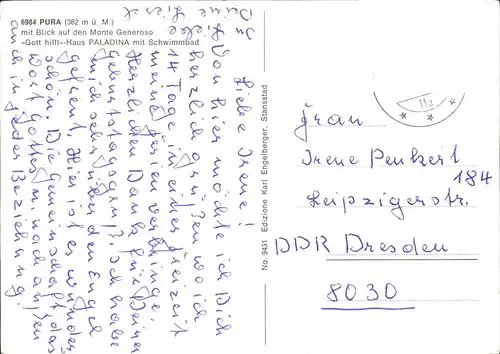 6984 PURA (382 m ü. M.)
mit Blick auf den Monte Generoso
«Gott hilft»-Haus PALADINA mit Schwimmbad
Liebe Irene!
Von hier möchte ich Dich
herzlich grüßen wo ich
14 Tage in einer Freizeit
meine Ferien verbringe.
Herzlichen Dank für Deine
Geburtstagsgrüße. Ich habe
mich sehr über den Engel
gefreut. Hier ist es wunder
schön. Die Gemeinschaft, das
Wort Gottes u. nach außen
auch in jeder Beziehung.
Deine Liesel
No. 9431 Edizione Karl Engelberger, Stansstad
113
Frau
Irene Penkert
Leipzigerstr. 184
DDR Dresden
8030